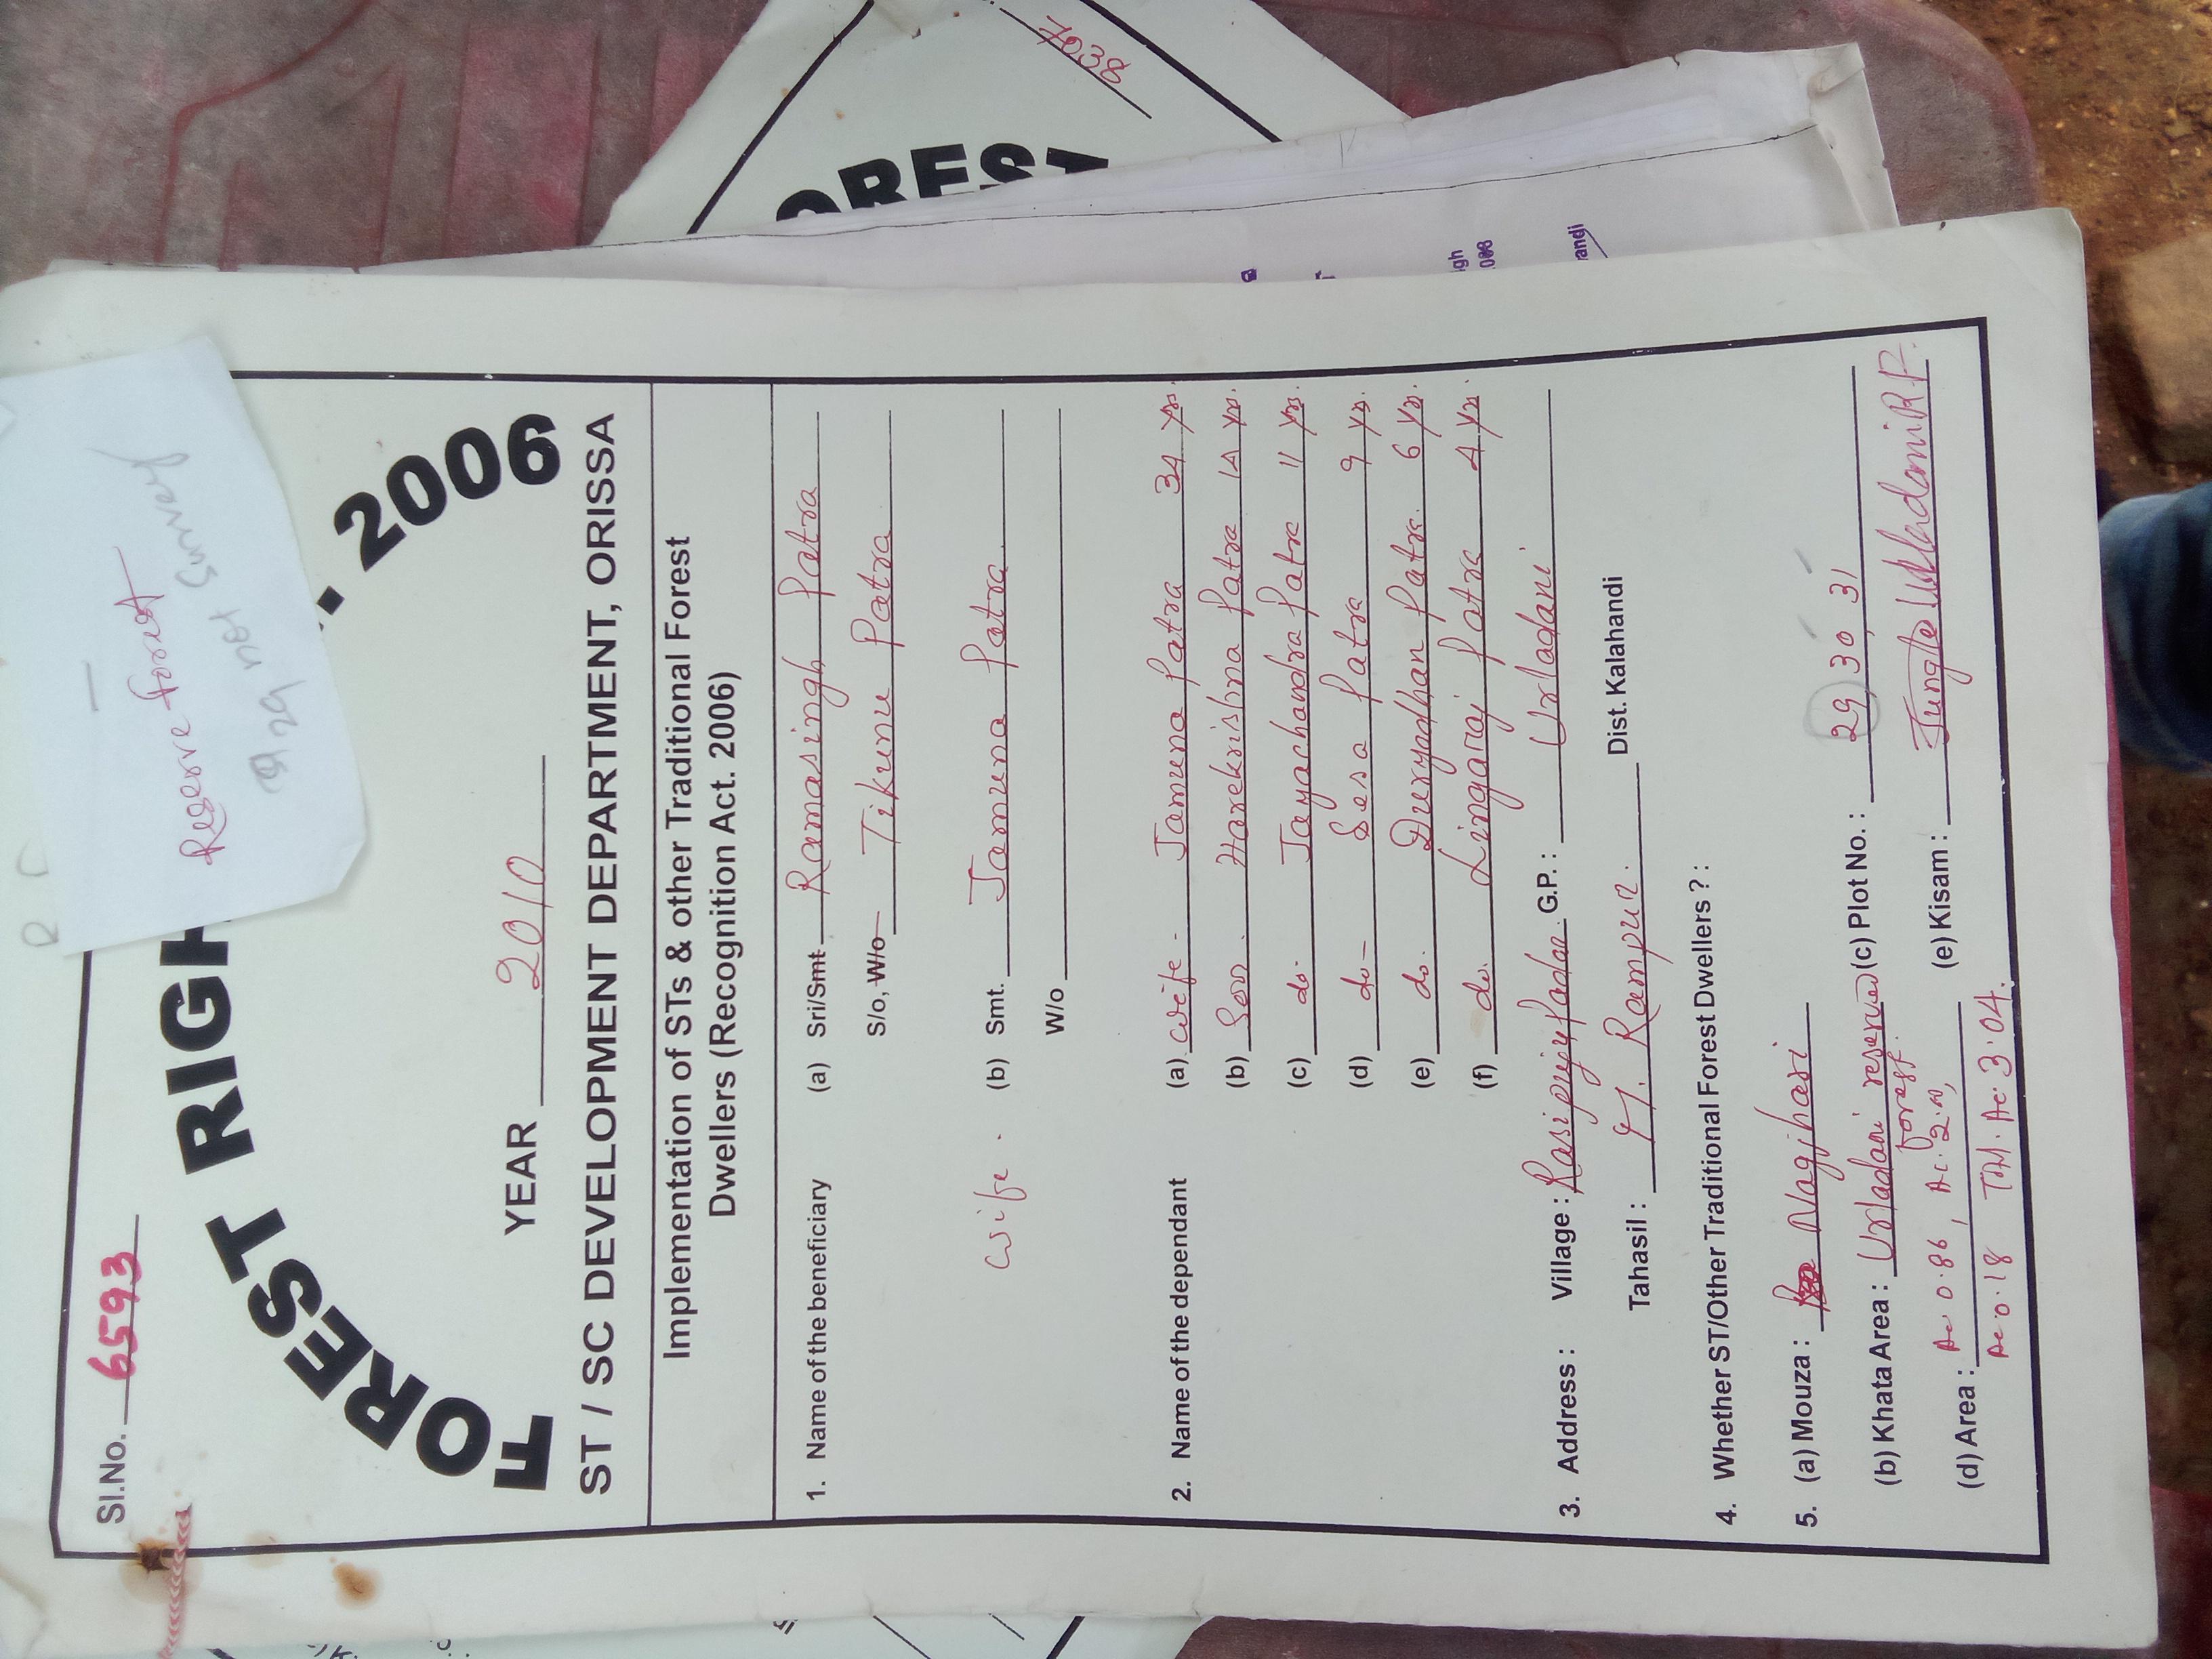 Sl.No. 6593
Reserve forest
29 not Survey
FOREST RIGH
2006
YEAR 2010
ST / SC DEVELOPMENT DEPARTMENT, ORISSA
Implementation of STs & other Traditional Forest
Dwellers (Recognition Act. 2006)
1. Name of the beneficiary (a) Sri/Smt Ramasingh Patra
S/o, W/o Tikunu Patra
wife. (b) Smt. Jamuna Patra
W/o
2. Name of the dependant (a) wife - Jamuna Patra 34 yrs.
(b) Son. Harekrishna Patra 14 yrs.
(c) do- Jayachandra Patra 11 yrs.
(d) do- Sesa Patra 9 yrs.
(e) do. Duryadhan Patra. 6 yrs.
(f) do. Lingaraj Patra 4 yrs.
3. Address : Village : G.P. : Urladani
Tahasil : Rampur. Dist. Kalahandi
4. Whether ST/Other Traditional Forest Dwellers ? :
5. (a) Mouza : Nagjhari
(b) Khata Area : Urladani reserved forest. (c) Plot No. : 29, 30, 31
(d) Area : Ac 0.86, Ac. 2.00, (e) Kisam : Jungle Urladani R.F.
Ac 0.18 Ac. 3.04.
7038
OREST
igh
randi